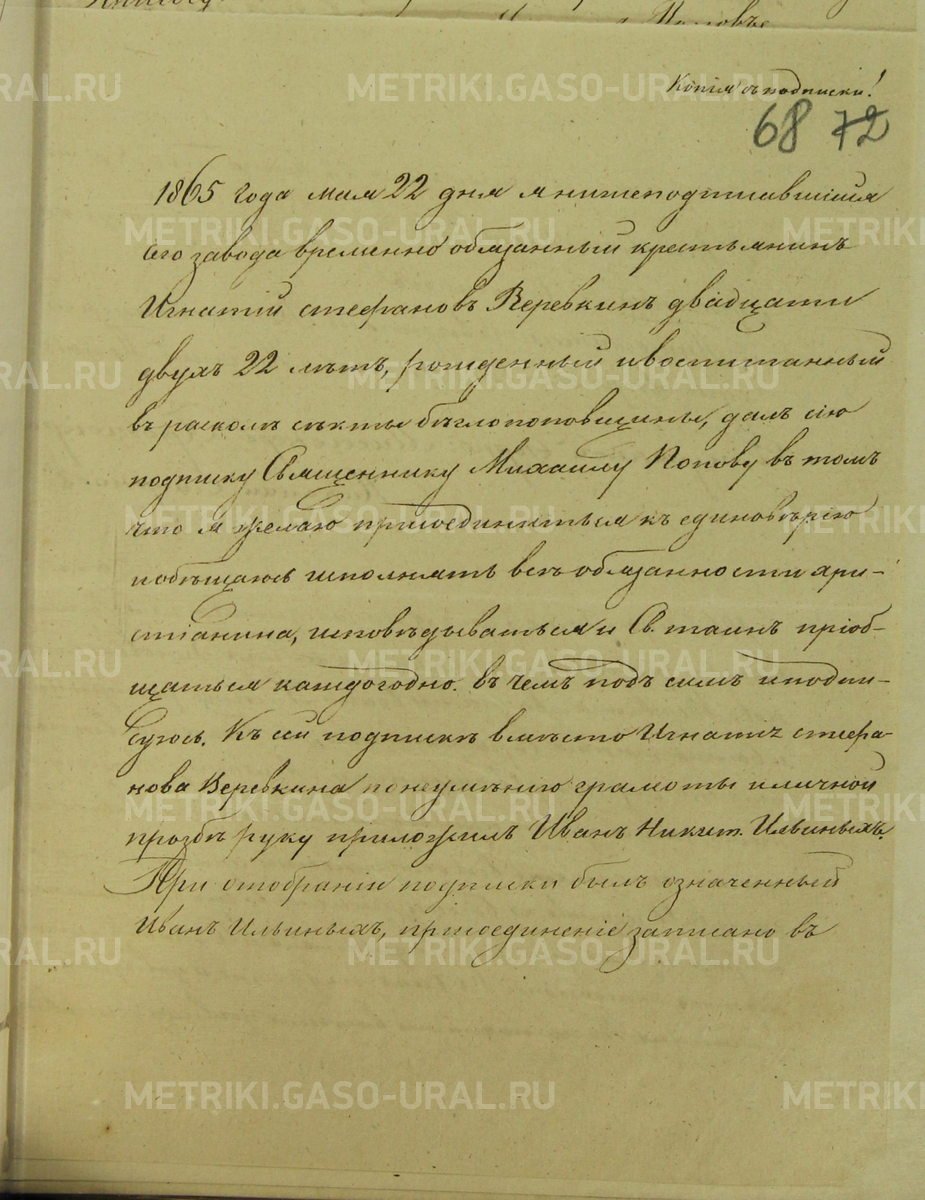 Копія съ подписки!
68 72
1865 года мая 22 дня я нижеподписавшійся
сего завода временно обязанный крестьянинъ
Игнатій Стефановъ Веревкинъ двадцати
двухъ 22 лѣтъ, рожденный и воспитанный
въ расколѣ секты бѣглопоповщины, далъ сію
подписку Священнику Михаилу Попову въ томъ
что я желаю присоединиться къ единовѣрію
и обѣщаюсь исполнять всѣ обязанности хри-
стіанина, исповѣдываться и Св. таинъ пріоб-
щаться каждогодно. въ чемъ подъ симъ и подпи-
суюсь. Къ сей подпискѣ вмѣсто Игнатія Стефа-
нова Веревкина по неумѣнію грамоты и личной
прозбѣ руку приложилъ Иванъ Никит. Ильиныхъ.
При отобраніи подписки былъ означенный
Иванъ Ильиныхъ, присоединеніе записано въ
METRIKI.GASO-URAL.RU